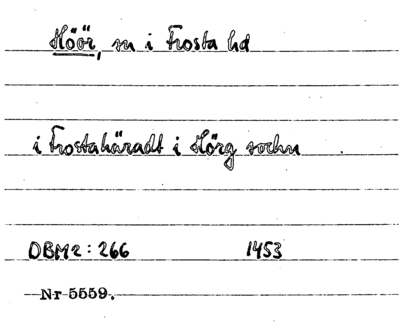 Höör, sn i Frosta hd
i Frostahäradt i Hörg sochn
DBM2: 266 1453
Nr 5559.